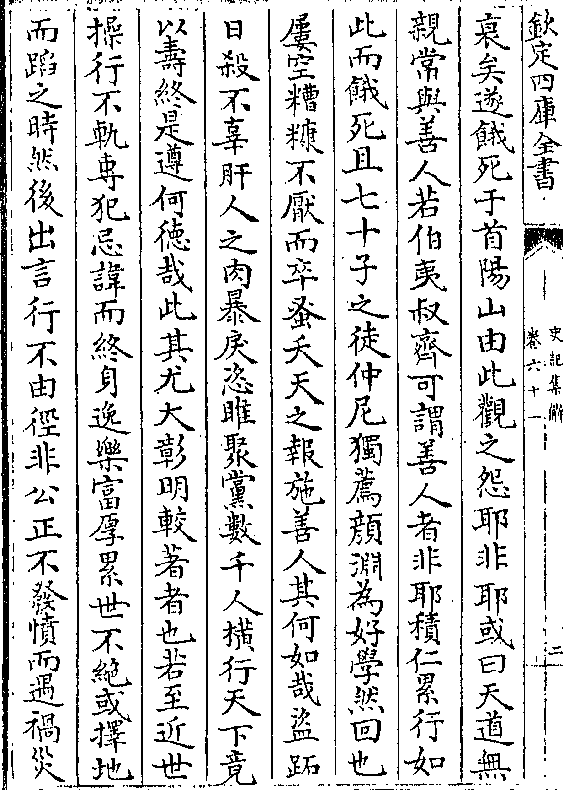 欽定四庫全書
史記集解
卷六十一
二
哀矣遂餓死于首陽山由此觀之怨耶非耶或曰天道無
親常與善人若伯夷叔齊可謂善人者非耶積仁累行如
此而餓死且七十子之徒仲尼獨薦顔淵為好學然回也
屢空糟糠不厭而卒蚤夭天之報施善人其何如哉盜跖
日殺不辜肝人之肉暴戾恣睢聚黨數千人横行天下竟
以壽終是遵何德哉此其尤大彰明較著者也若至近世
操行不軌専犯忌諱而終身逸樂富厚累世不絶或擇地
而蹈之時然後出言行不由徑非公正不發憤而遇禍災